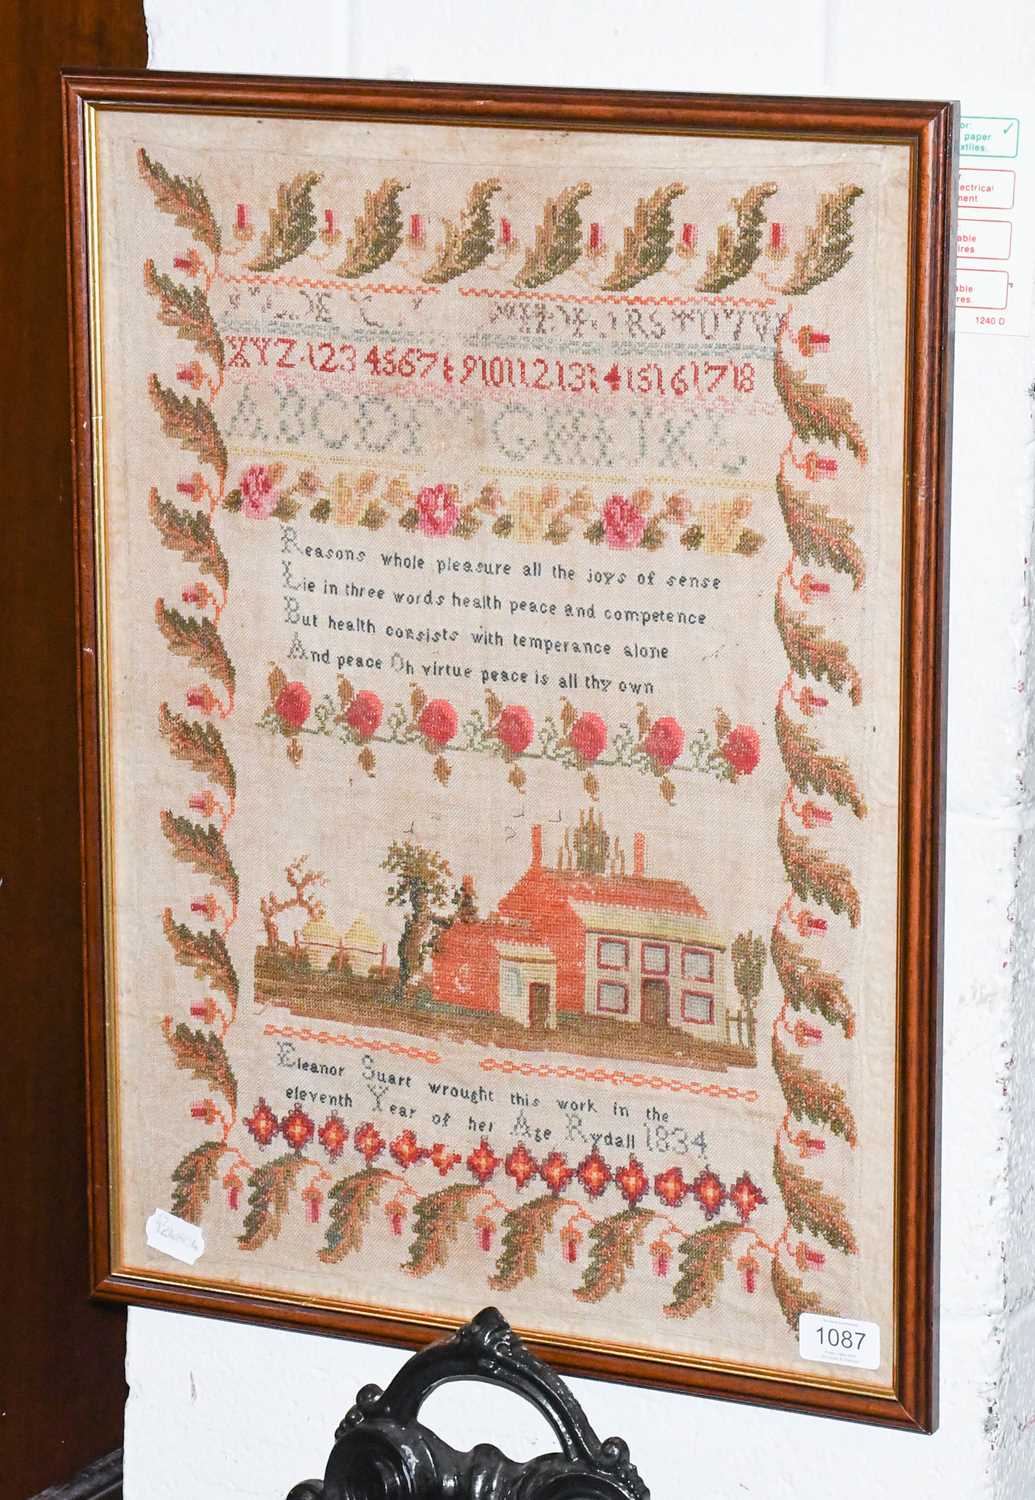 RS T U V W
X Y Z 1 2 3 4 5 6 7 8 9 10 11 12 13 14 15 16 17 18
A B C D E F G H I J K L
Reasons whole pleasure all the joys of sense
Lie in three words health peace and competence
But health consists with temperance alone
And peace Oh virtue peace is all thy own
Eleanor Suart wrought this work in the
eleventh Year of her Age Rydall 1834
1087
or:
paper
xtiles.
lectrical
ment
able
ires
able
res.
1240 D